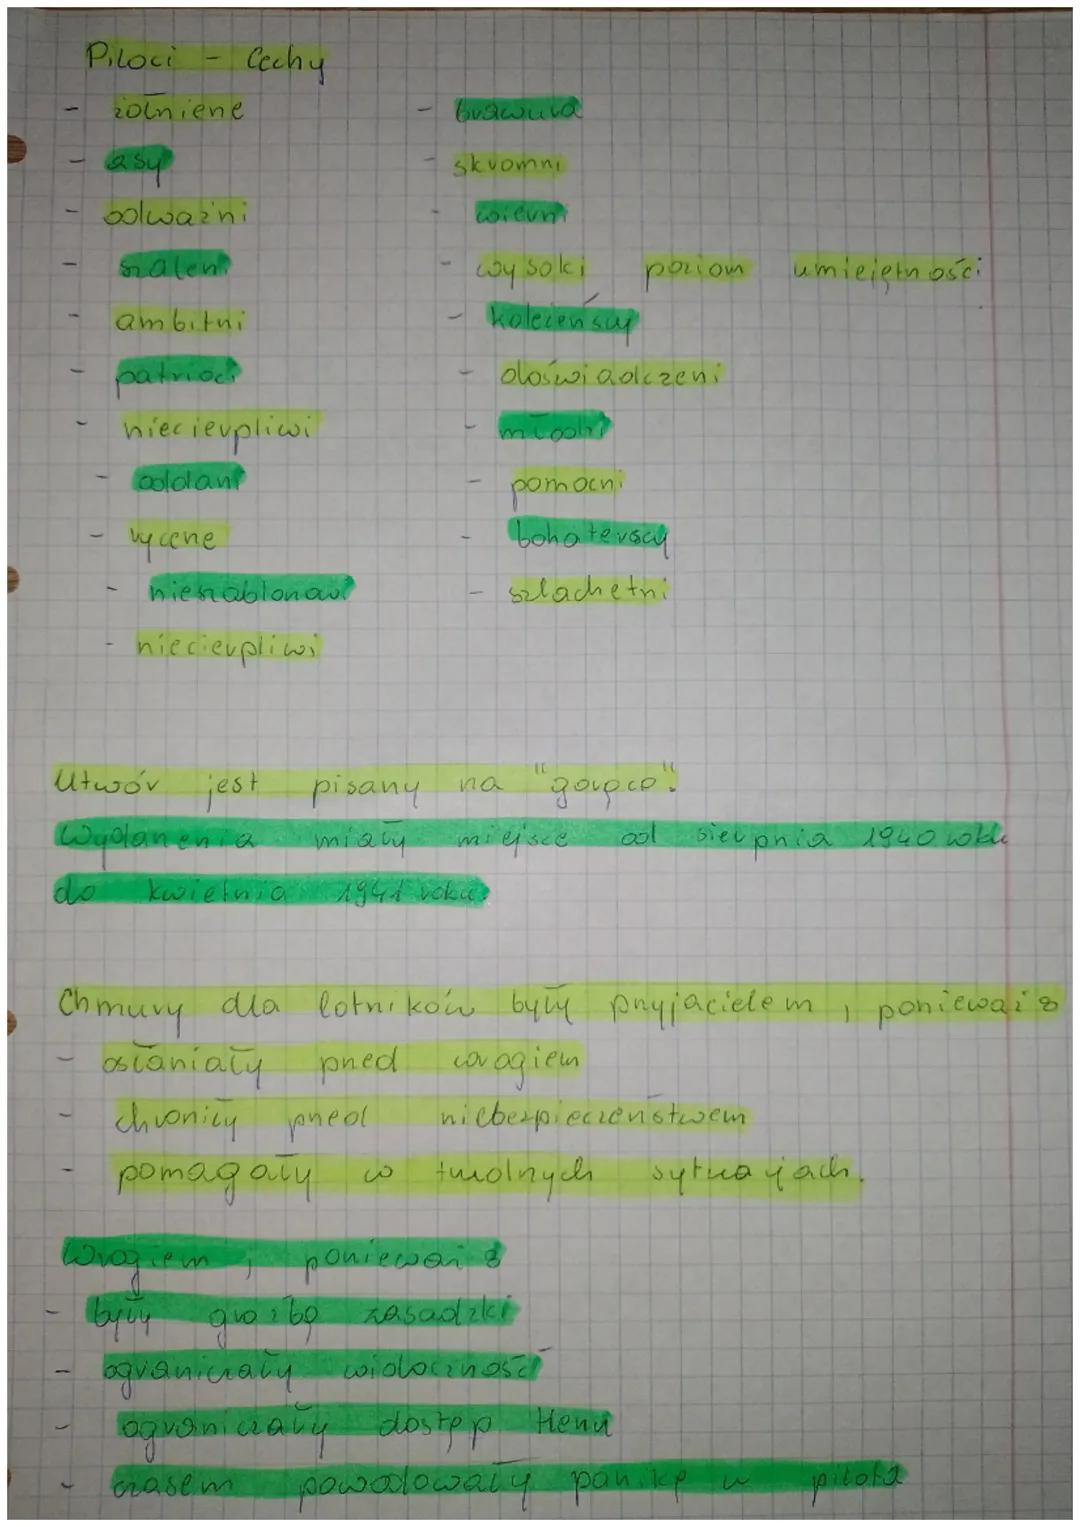 Piloci - Cechy
- żołnierze
- asy
- odważni
- szaleni
- ambitni
- patrioci
- niecierpliwi
- oddani
- rycerze
- nieszablonowi
- niecierpliwi
- brawura
- skromni
- wierni
- wysoki poziom umiejętności
- koleżeńscy
- doświadczeni
- młodzi
- pomocni
- bohaterscy
- szlachetni
Utwór jest pisany na "gorąco".
Wydarzenia miały miejsce od sierpnia 1940 roku
do kwietnia 1941 roku.
Chmury dla lotników były przyjacielem, ponieważ:
- osłaniały przed wrogiem
- chroniły przed niebezpieczeństwem
- pomagały w trudnych sytuacjach.
Wrogiem, ponieważ:
- były groźbą zasadzki
- ograniczały widoczność
- ograniczały dostęp tlenu
- czasem powodowały panikę u pilota